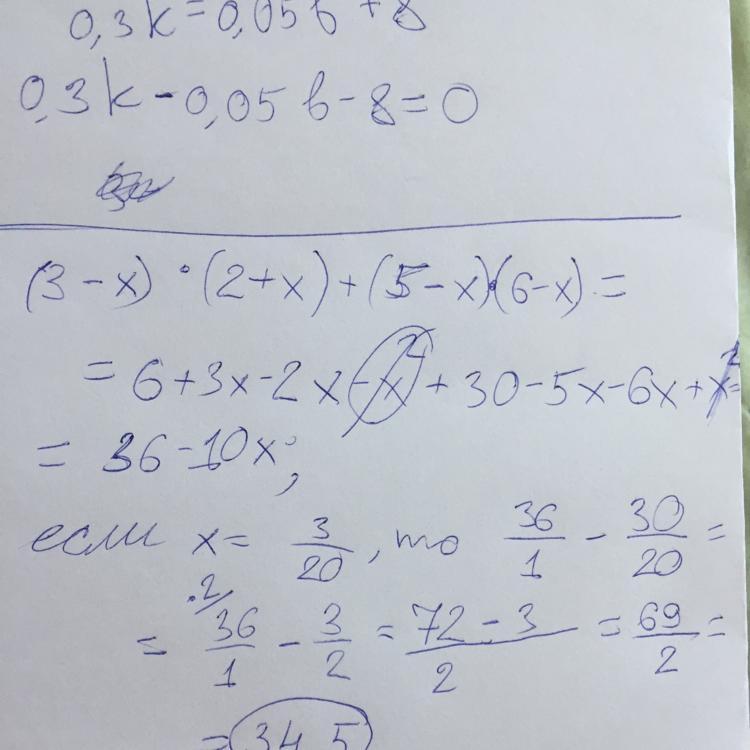 0,3k=0,05b+8
0,3k-0,05b-8=0
(3-x)·(2+x)+(5-x)·(6-x)=
=6+3x-2x-x²+30-5x-6x+x²=
=36-10x;
если x=3/20, то 36/1-30/20=
·2/
=36/1-3/2=72-3/2=69/2=
=34,5